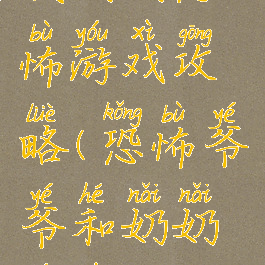 bù yóu xì gōng
怖游戏攻
lüè kǒng bù yé
略(恐怖爷
yé hé nǎi nai
爷和奶奶